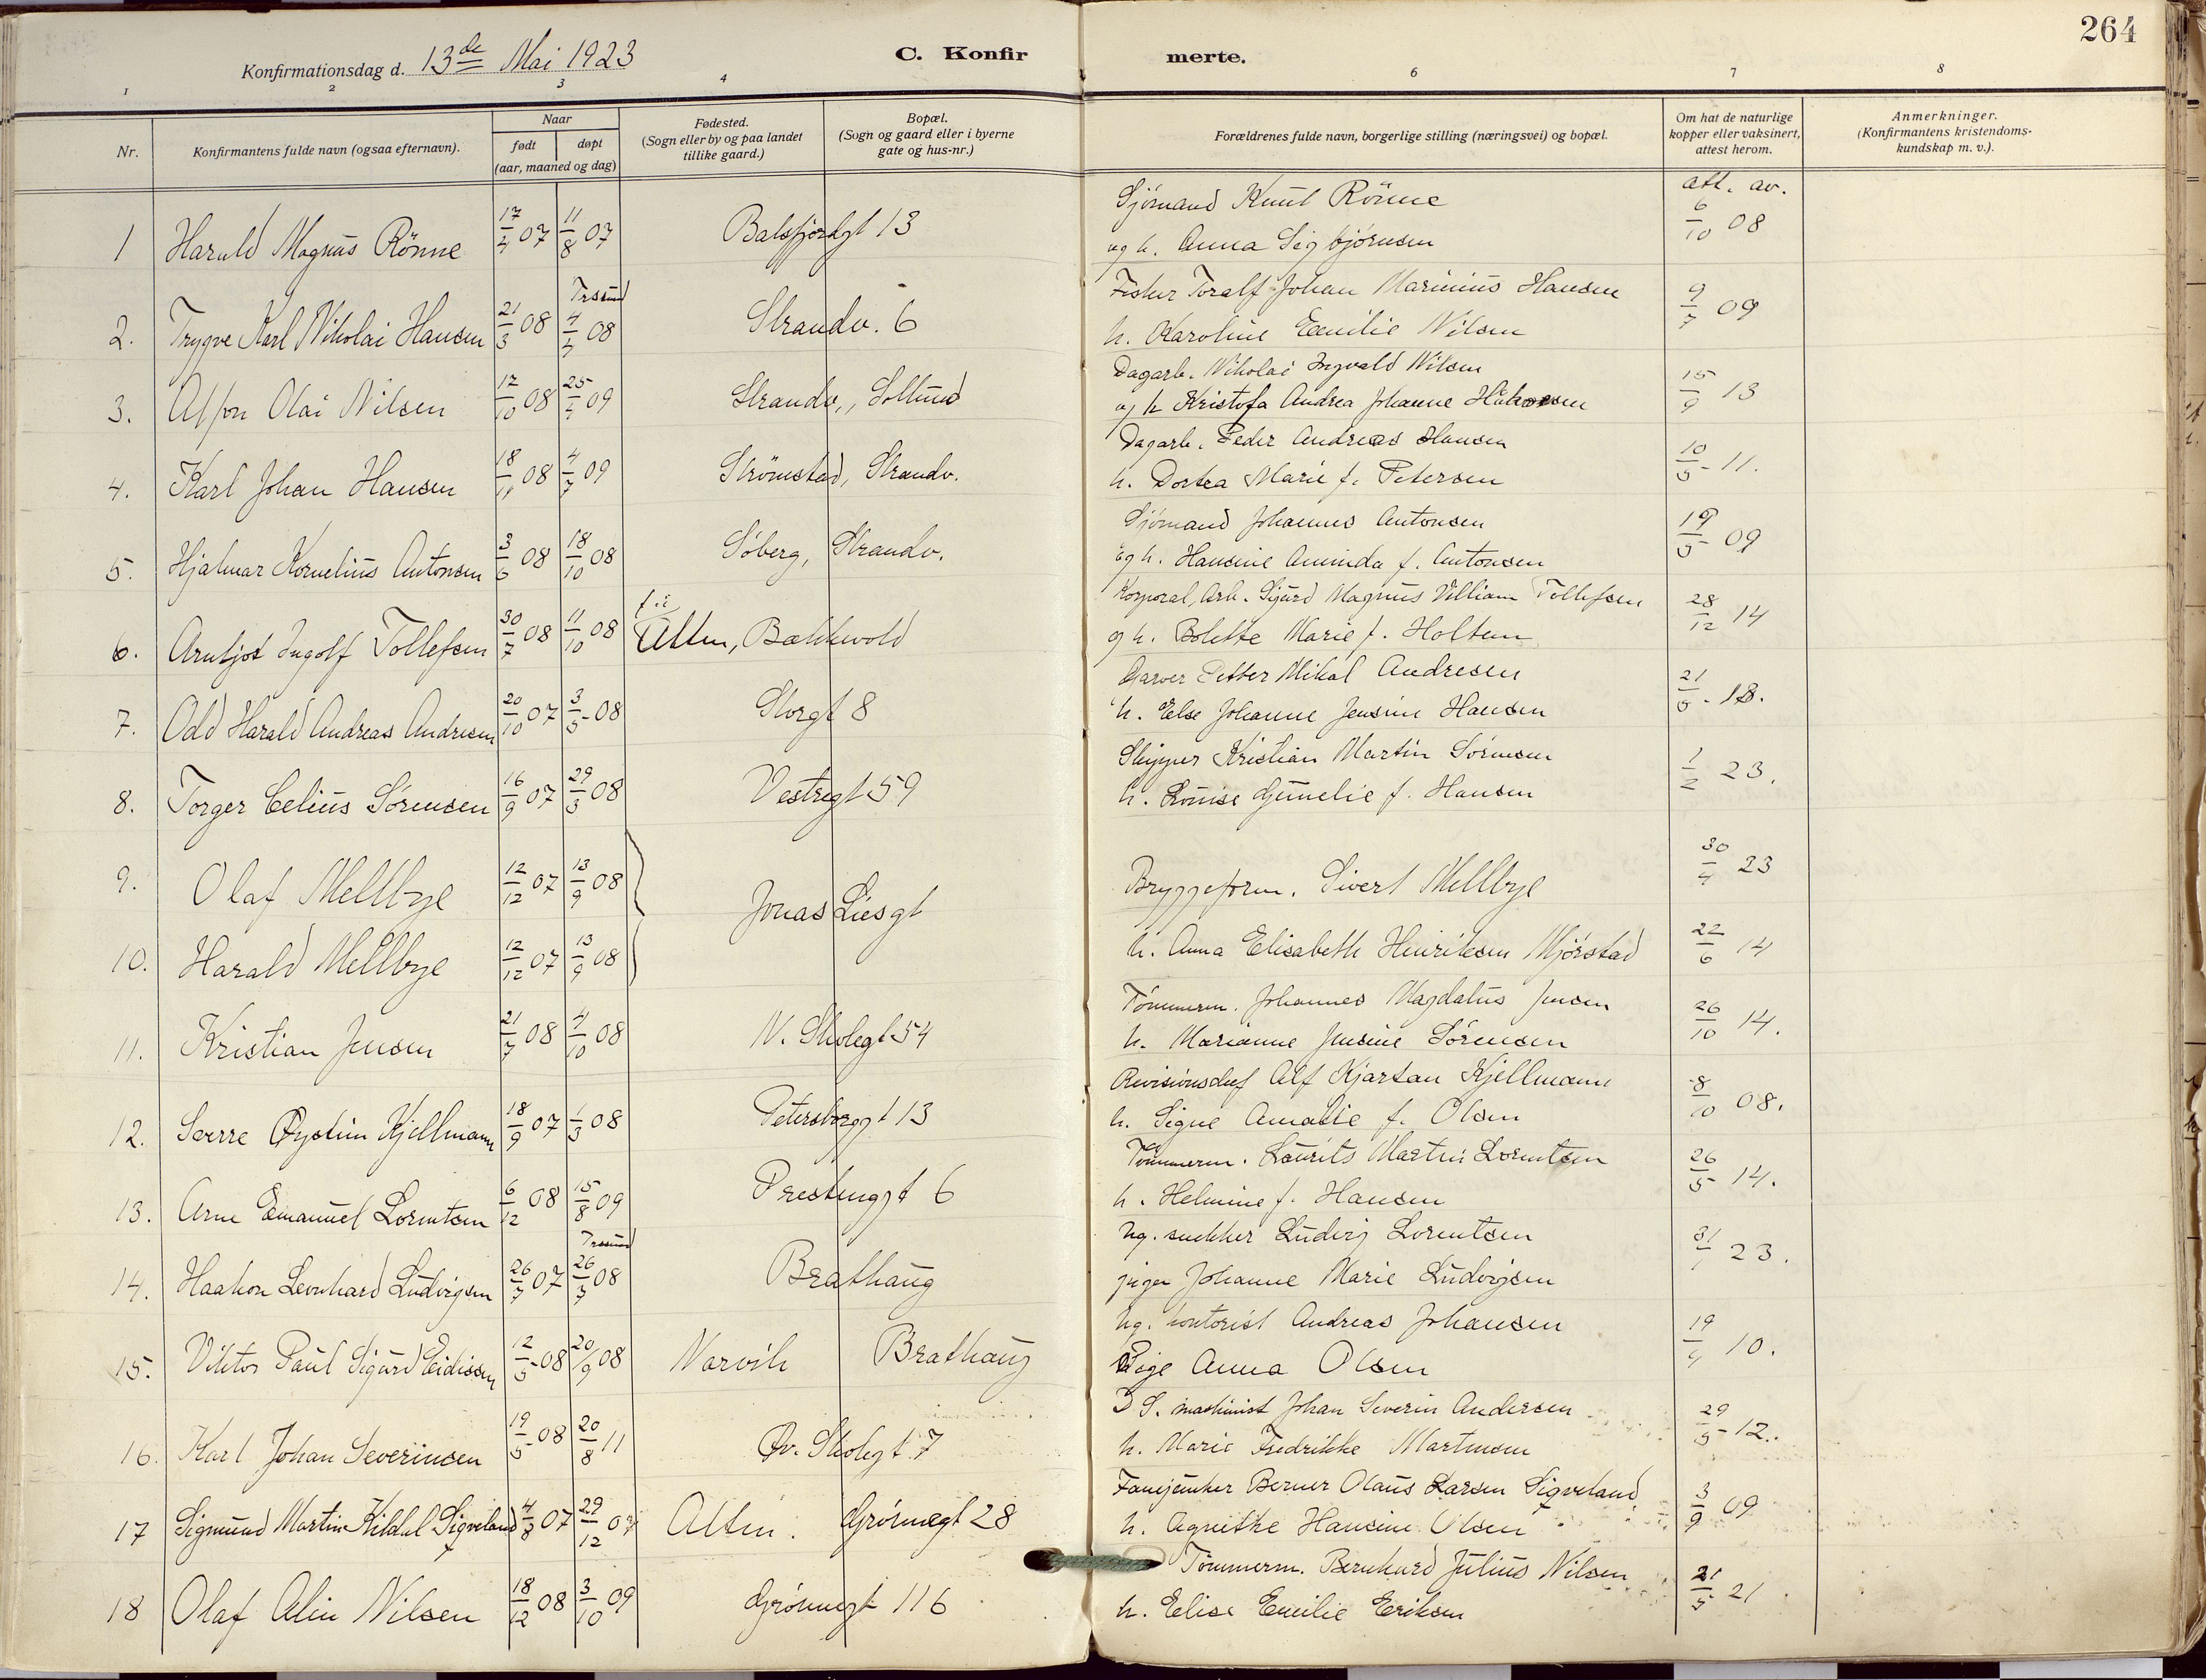 264
Konfirmationsdag d. 13de Mai 1923
C. Konfirmerte.
1 2 3 4 6 7 8
Nr.
Konfirmantens fulde navn (ogsaa efternavn).
Naar
født
døpt
(aar, maaned og dag)
Fødested.
(Sogn eller by og paa landet
tillike gaard.)
Bopæl.
(Sogn og gaard eller i byerne
gate og hus-nr.)
Forældrenes fulde navn, borgerlige stilling (næringsvei) og bopæl.
Om hat de naturlige
kopper eller vaksinert,
attest herom.
Anmerkninger.
(Konfirmantens kristendoms-
kundskap m. v.).
att. av.
1 Harald Magnus Rönne 17/4 07 11/8 07 Balsfjordgt 13
Sjömand Knut Rönne
og h. Anna Sigbjörnsen
6/10 08
2. Trygve Karl Nikolai Hansen 21/3 08 Tromsund 4/7 08 Strandv. 6
Fisker Toralf Johan Marinius Hansen
h. Karoline Emilie Nilsen
9/7 09
3. Alfon Olai Nilsen 12/10 08 25/4 09 Strandv., Sollund
Dagarb. Nikolai Ingvald Nilsen
og h Kristofa Andrea Johanne Håkonsen
15/9 13
4. Karl Johan Hansen 18/11 08 4/7 09 Strömstad, Strandv.
Dagarb. Peder Andreas Hansen
h. Dortea Marie f. Petersen
10/5 - 11.
5. Hjalmar Kornelius Antonsen 3/6 08 18/10 08 Söberg, Strandv.
Sjömand Johannes Antonsen
og h. Hansine Aminda f. Antonsen
19/5 - 09
6. Arntjot Ingolf Tollefsen 30/7 08 11/10 08 f. i Alten, Bækkevold
Korporal, Arb. Sigurd Magnus Villiam Tollefsen
og h. Bolette Marie f. Holten
28/12 14
7. Odd Harald Andreas Andresen 20/10 07 3/5 - 08 Storgt 8
Garver Petter Mikal Andresen
h. Else Johanne Jensine Hansen
21/5 - 18.
8. Torger Celius Sörensen 16/9 07 29/3 08 Vestregt 59
Skipper Kristian Martin Sörensen
h. Louise Gunelie f. Hansen
1/2 23.
9. Olaf Mellbye 12/12 07 13/9 08
Jonas Liesgt
Bryggeform. Sivert Mellbye
30/4 23
10. Harald Mellbye 12/12 07 13/9 08
h. Anna Elisabeth Henriksen Mjörstad
22/6 14
11. Kristian Jensen 21/7 08 4/10 08 N. Skolegt 54
Tömmerm. Johannes Magdalus Jensen
h. Marianne Jensine Sörensen
26/10 14.
12. Sverre Øystein Kjellmann 18/9 07 1/3 08 Petersborggt 13
Revisionschef Alf Kjartan Kjellmann
h. Signe Amalie f. Olsen
8/10 08.
13. Arne Emanuel Lorentsen 6/12 08 15/8 09 Prestenggt 6
Tömmerm. Laurits Martin Lorentsen
h. Helmine f. Hansen
26/5 - 14.
14. Haakon Leonhard Ludvigsen 26/7 07 Tromsund 26/7 08 Brathaug
Ug. snekker Ludvig Lorentsen
pigen Johanne Marie Ludvigsen
31/1 23.
15. Viktor Paul Sigurd Eidissen 12/5 - 08 20/9 08 Narvik Brathaug
Ug. kontorist Andreas Johansen
Pige Anna Olsen
19/4 10.
16. Karl Johan Severinsen 19/5 - 08 20/8 11 Øv. Skolegt 7
D S. maskinist Johan Severin Andersen
h. Marie Fredrikke Martinsen
29/5 - 12.
17 Sigmund Martin Kildal Sigveland 4/8 07 29/12 07 Alten. Grönnegt 28
Fanejunker Berner Olaus Larsen Sigveland
h. Agnethe Hansine Olsen
3/9 09
18 Olaf Alin Nilsen 18/12 08 3/10 09 Grönnegt 116
Tömmerm. Bernhard Julius Nilsen
h. Elise Emilie Eriksen
21/5 21